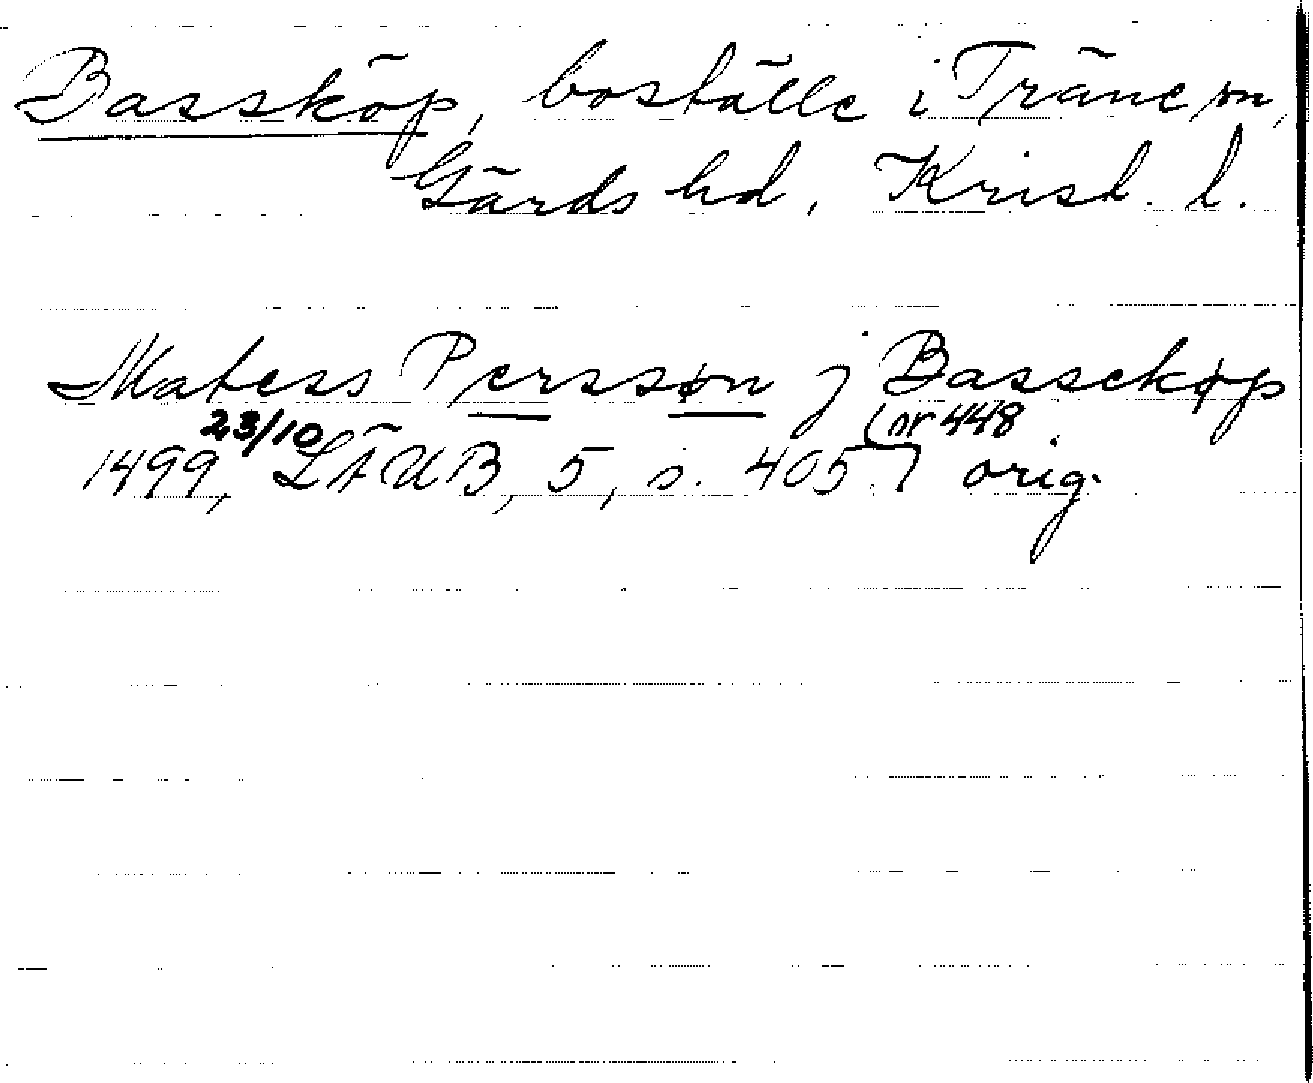 Bassköp, boställe i Träne sn,
Gärds hd, Krist. l.
Matess Perssøn j Bassekøp
23/10 (nr 448
1499, LÄUB, 5, s. 405. orig.